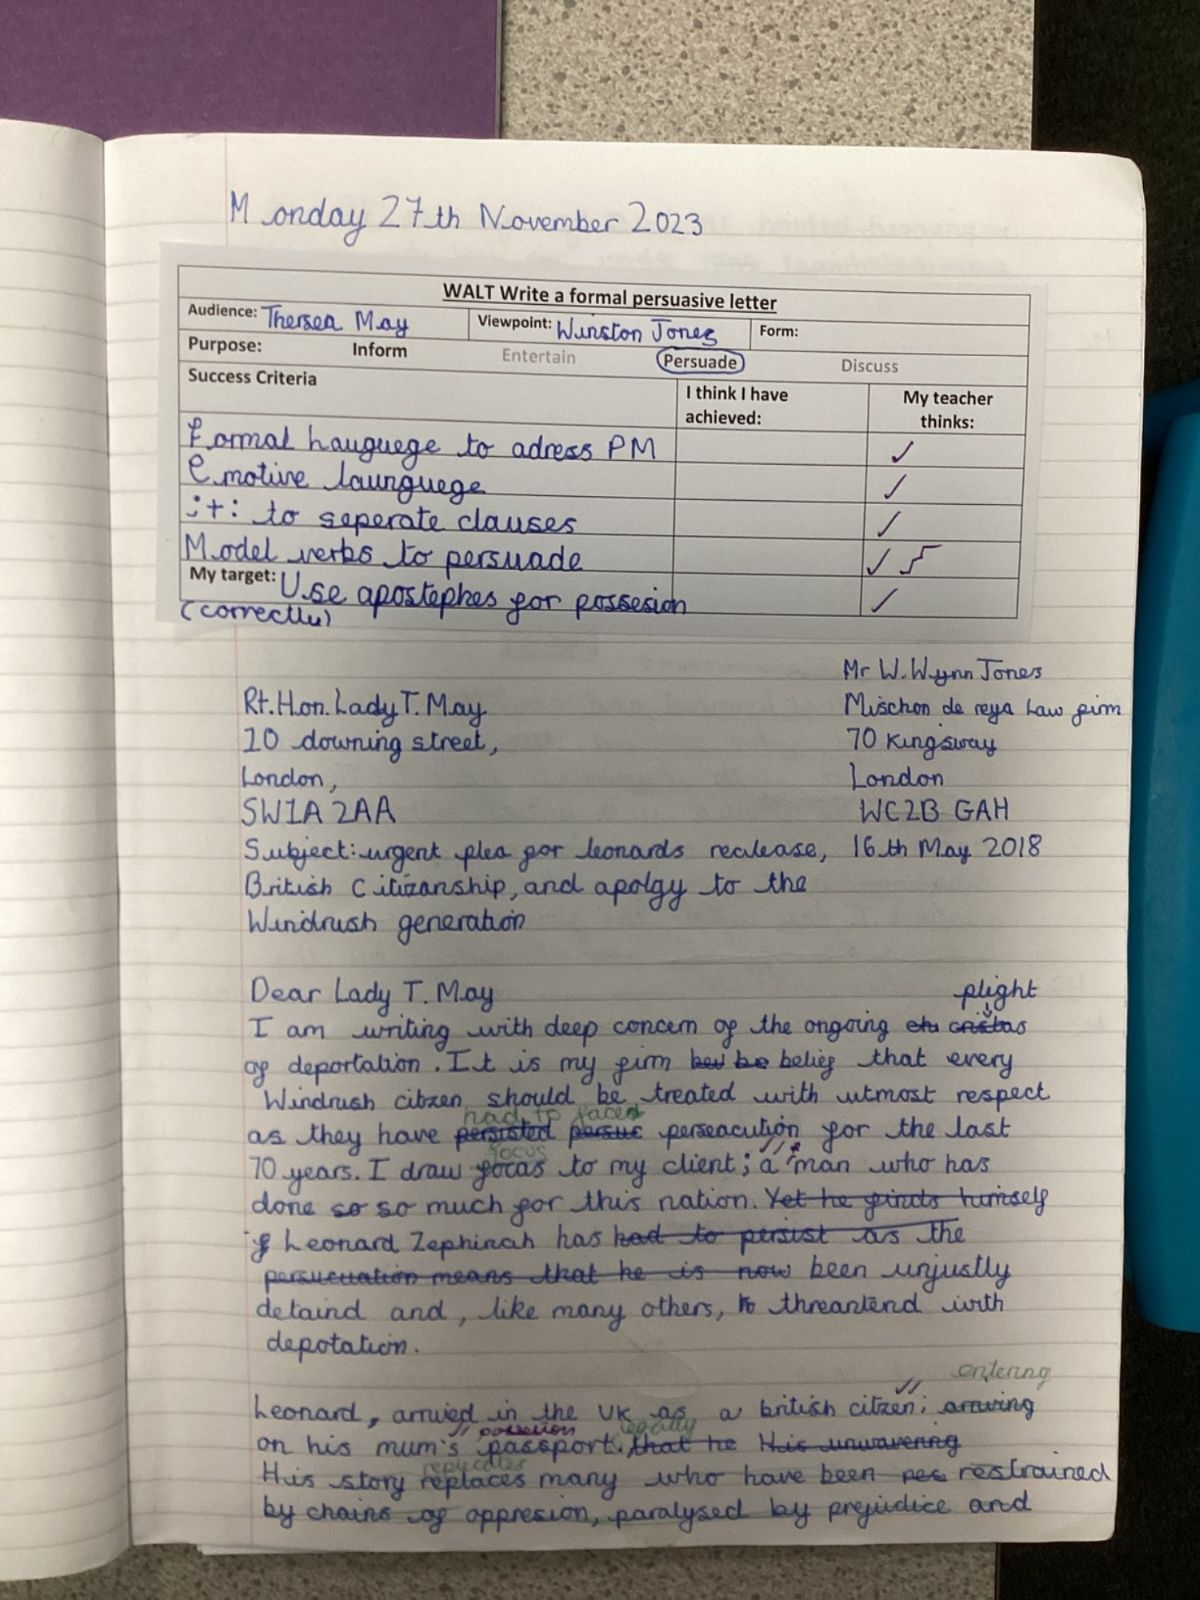 Monday 27th November 2023
WALT Write a formal persuasive letter
Audience: Thersea May Viewpoint: Winston Jones Form:
Purpose: Inform Entertain Persuade Discuss
Success Criteria I think I have achieved: My teacher thinks:
formal hauguege to adress PM ✓
Emotive launguege ✓
; + : to seperate clauses ✓
Model verbs to persuade ✓
My target: Use apostephes for possesion ✓
(correctly)
Mr W. Wynn Jones
Rt. Hon. Lady T. May Mischon de reya Law firm
10 downing street, 70 Kingsway
London, London
SW1A 2AA WC2B GAH
Subject: urgent plea for leonards realease, 16th May 2018
British Citizanship, and apolgy to the
Windrush generation
Dear Lady T. May plight
I am writing with deep concern of the ongoing
of deportation. It is my firm belief that every
Windrush citizen should be treated with utmost respect
had to faced
as they have persisted persue perseacution for the last
focus
70 years. I draw focas to my client; a man who has
done so so much for this nation. Yet he finds himself
Leonard Zephinah has had to persist as the
persucuation means that he is now been unjustly
detaind and, like many others, threantend with
depotation.
entering
Leonard, arrived in the UK as a british citizen; arriving
possetion legally
on his mum's passport. that he His unwavering
replicates
His story replaces many who have been restrained
by chains of oppresion, paralysed by prejudice and